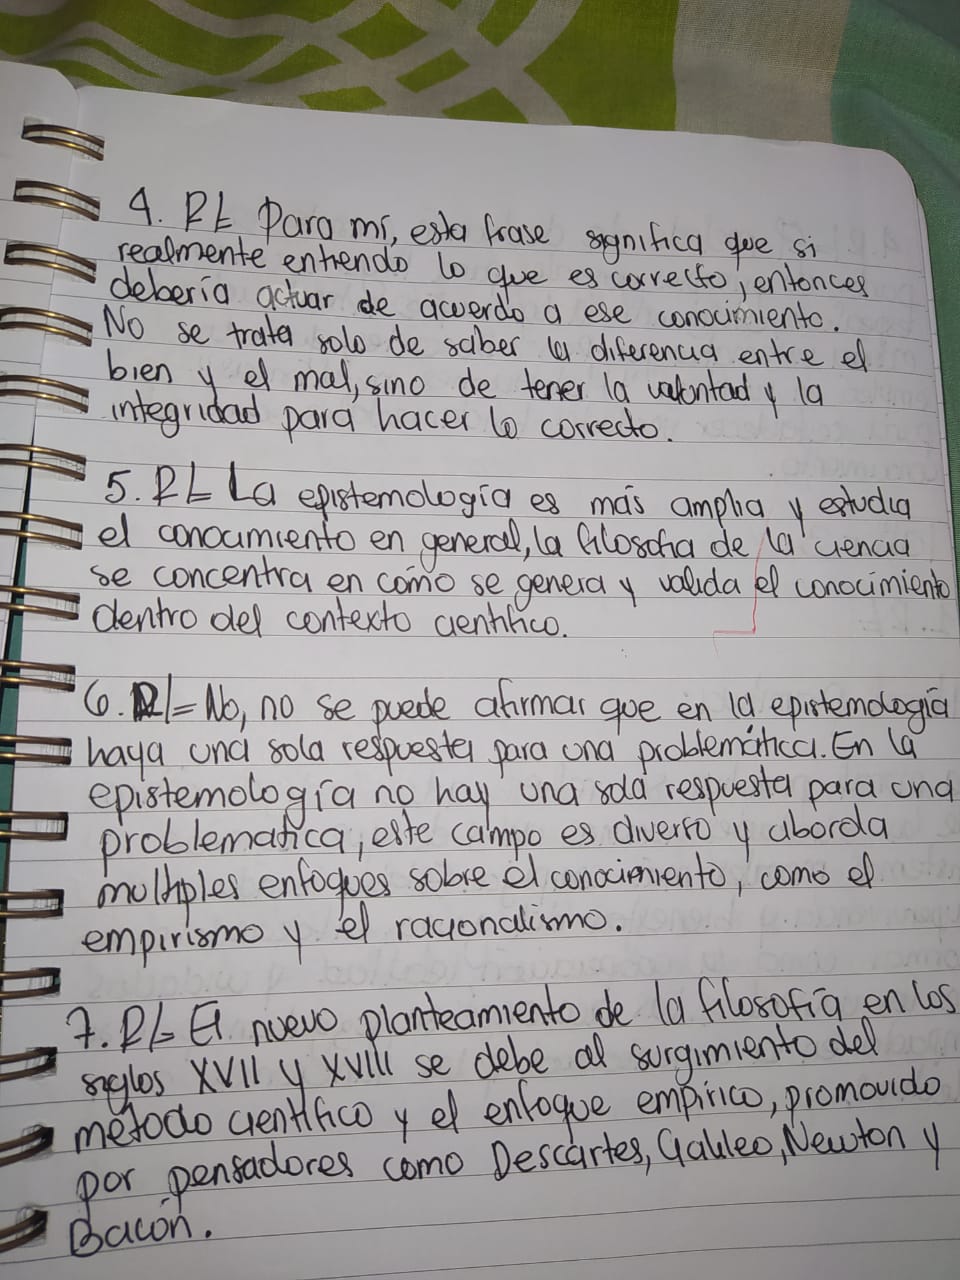 4. R/= Para mí, esta frase significa que si
realmente entiendo lo que es correcto, entonces
debería actuar de acuerdo a ese conocimiento.
No se trata solo de saber la diferencia entre el
bien y el mal, sino de tener la voluntad y la
integridad para hacer lo correcto.
5. R/= La epistemología es más amplia y estudia
el conocimiento en general, la filosofia de la ciencia
se concentra en cómo se genera y valida el conocimiento
dentro del contexto científico.
6. R/= No, no se puede afirmar que en la epistemología
haya una sola respuesta para una problemática. En la
epistemología no hay una sola respuesta para una
problematica, este campo es diverso y aborda
multiples enfoques sobre el conocimiento, como el
empirismo y el racionalismo.
7. R/= El nuevo planteamiento de la filosofía en los
siglos XVII y XVIII se debe al surgimiento del
método científico y el enfoque empírico, promovido
por pensadores como Descartes, Galileo, Newton y
Bacón.